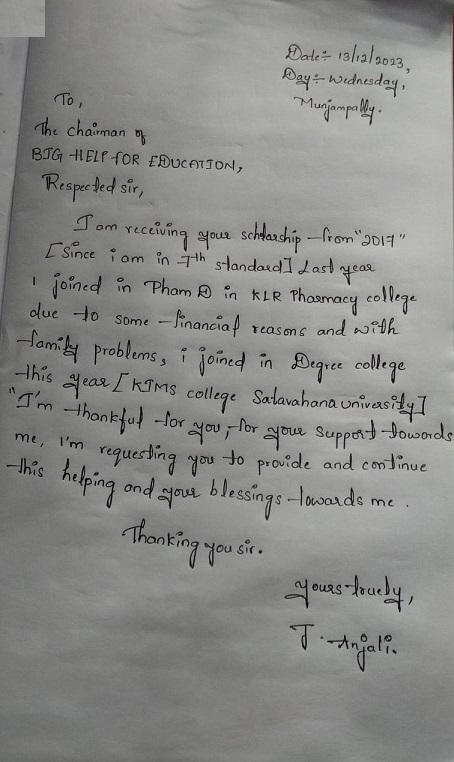 Date:- 13/12/2023,
Day:- Wednesday,
Munjampally.
To,
The chairman of
BIG HELP FOR EDUCATION,
Respected sir,
I am receiving your scholarship from "2017"
[Since i am in 7th standard] Last year
i joined in Pham D in KLR Pharmacy college
due to some financial reasons and with
family problems, i joined in Degree college
this year [KIMS college Satavahana university]
"I'm thankful for you, for your support towards
me, I'm requesting you to provide and continue
this helping and your blessings towards me.
Thanking you sir.
yours truely,
J. Anjali.